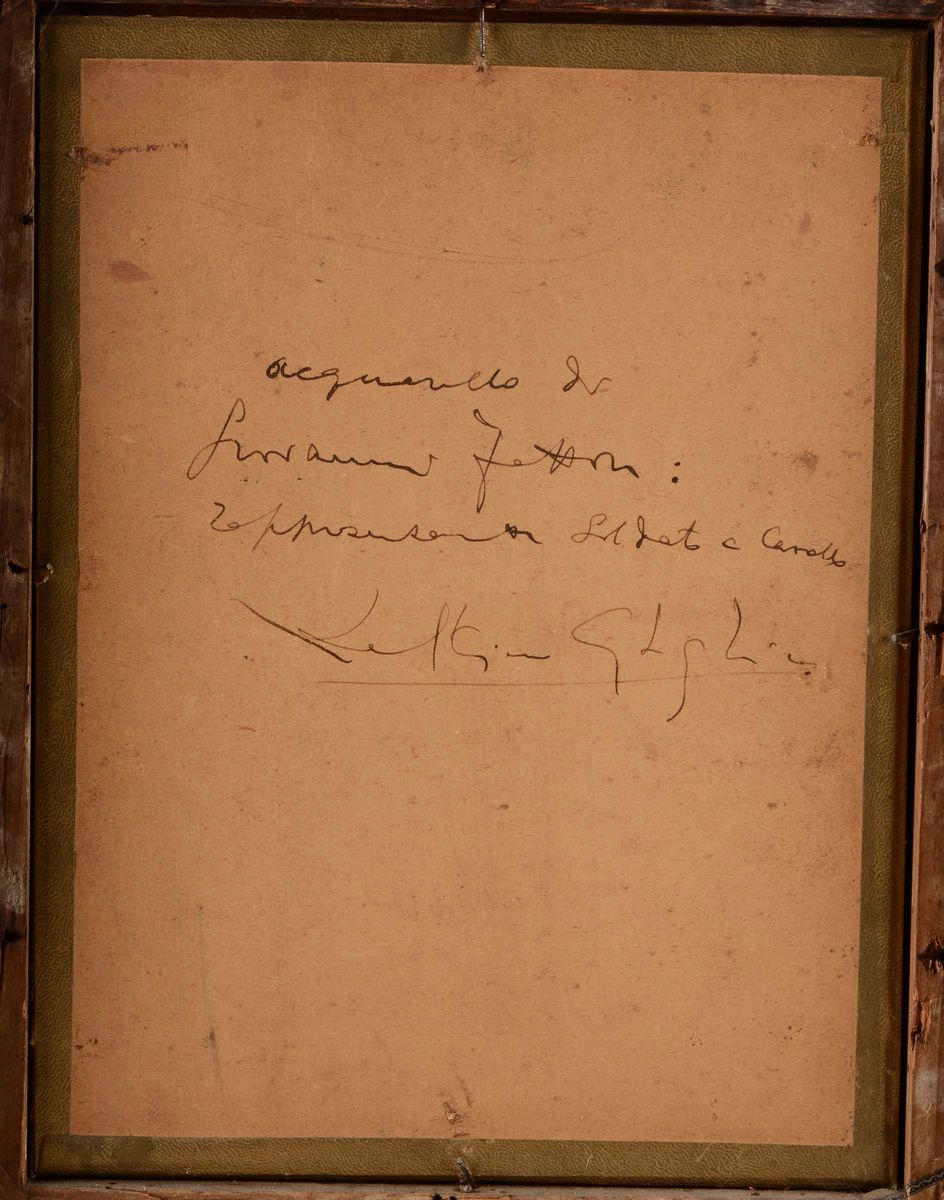 acquerello di
Giovanni Fattori:
rappresentante Soldato a Cavallo